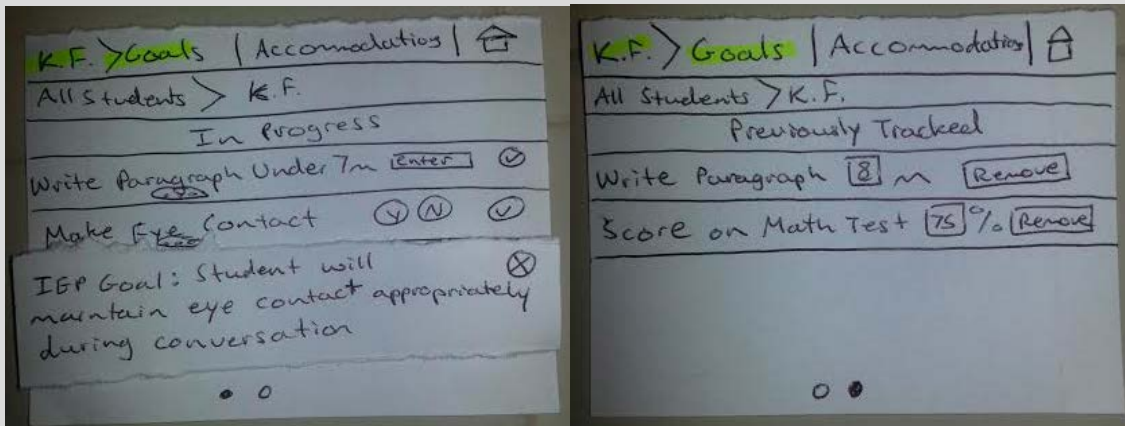 K.F. > Goals | Accommodations |
All Students > K.F.
In Progress
Write Paragraph Under 7m Enter
Make Eye Contact Y N
IEP Goal: Student will
maintain eye contact appropriately
during conversation
K.F. > Goals | Accommodations |
All Students > K.F.
Previously Tracked
Write Paragraph 8 m Remove
Score on Math Test 75 % Remove